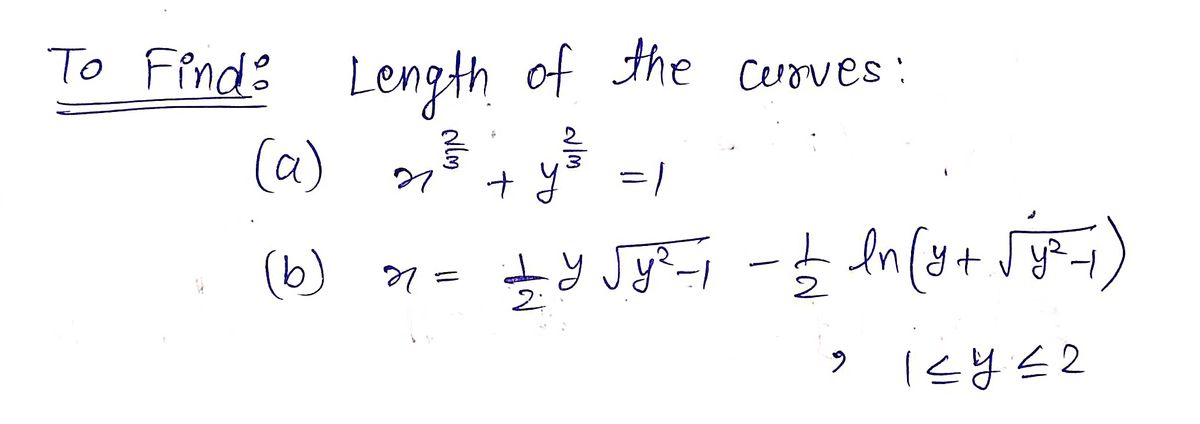 To Find: Length of the curves:
(a) x^{2/3} + y^{2/3} = 1
(b) x = 1/2 y √(y²-1) - 1/2 ln(y + √(y²-1))
, 1 ≤ y ≤ 2